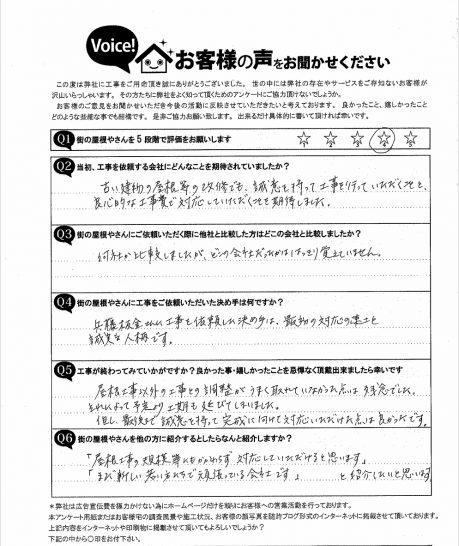 Voice!
お客様の声をお聞かせください
この度は弊社に工事をご用命頂き誠にありがとうございました。世の中には弊社の存在やサービスをご存知ないお客様が
沢山いらっしゃいます。その方たちに弊社をよく知って頂くためのアンケートにご協力頂けないでしょうか。
お客様のご意見をお聞かせいただき今後の活動に反映させていただきたいと考えております。良かったこと、嬉しかったこと
どのような些細な事でも結構です。是非ご協力お願い致します。出来るだけ具体的に書いて頂ければ幸いです。
Q1 街の屋根やさんを5段階で評価をお願いします
1 2 3 4 5
Q2 当初、工事を依頼する会社にどんなことを期待されていましたか?
古い建物の屋根等の改修でも、誠意を持って工事を行っていただくことを、
良心的な工事費で対応していただくことを期待しました。
Q3 街の屋根やさんにご依頼いただく際に他社と比較した方はどこの会社と比較しましたか?
何社か比較しましたが、どこの会社だったかははっきり覚えていません。
Q4 街の屋根やさんに工事をご依頼いただいた決め手は何ですか?
兵藤板金さんに工事を依頼した決め手は、最初の対応の速さと
誠実な人柄です。
Q5 工事が終わってみていかがですか?良かった事・嬉しかったことを忌憚なく頂戴出来ましたら幸いです
屋根工事以外の工事との調整がうまく取れていなかった点は残念でした。
それによって予定より工期も延びてしまいました。
但し、最後まで誠意を持って完成に向けて対応いただけた点は良かったです。
Q6 街の屋根やさんを他の方に紹介するとしたらなんと紹介しますか?
「屋根工事の規模等にもかかわらず対応していただけると思います」
「まだ新しい若い方たちで頑張っている会社です」 と紹介したいと思います
*弊社は広告宣伝費を膨力かけない為にホームページだけを頼りにお客様への営業活動を行っております。
本アンケート用紙またはお客様宅の調査風景や施工状況、お客様の顔写真を随時ブログ形式のインターネットに掲載させて頂いております。
上記内容をインターネットや印刷物に掲載させて頂いてもよろしいでしょうか?
下記の中から○印をお付下さい。